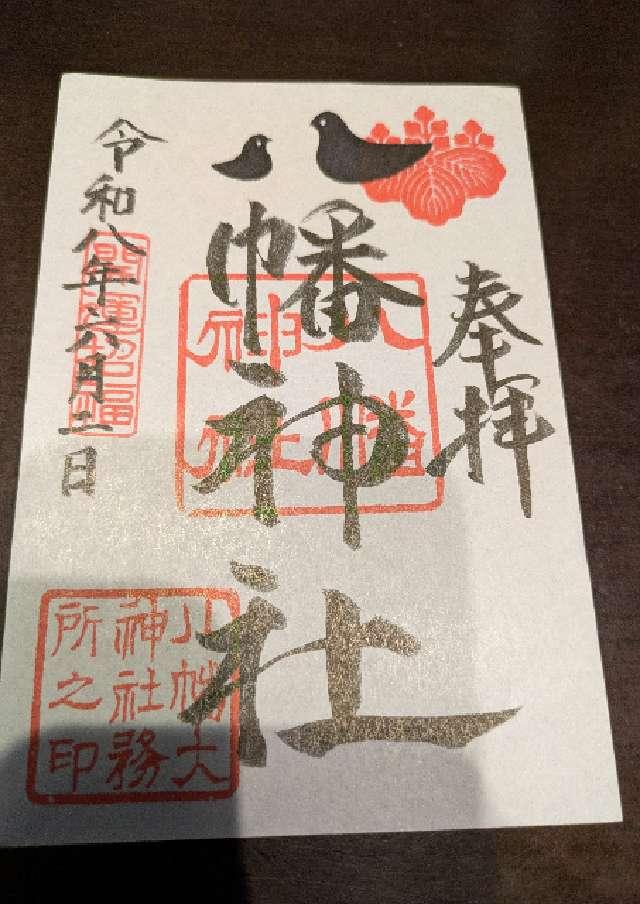 奉拝
八幡神社
令和八年六月二日
八幡神社
開運招福
八幡大
神社務
所之印